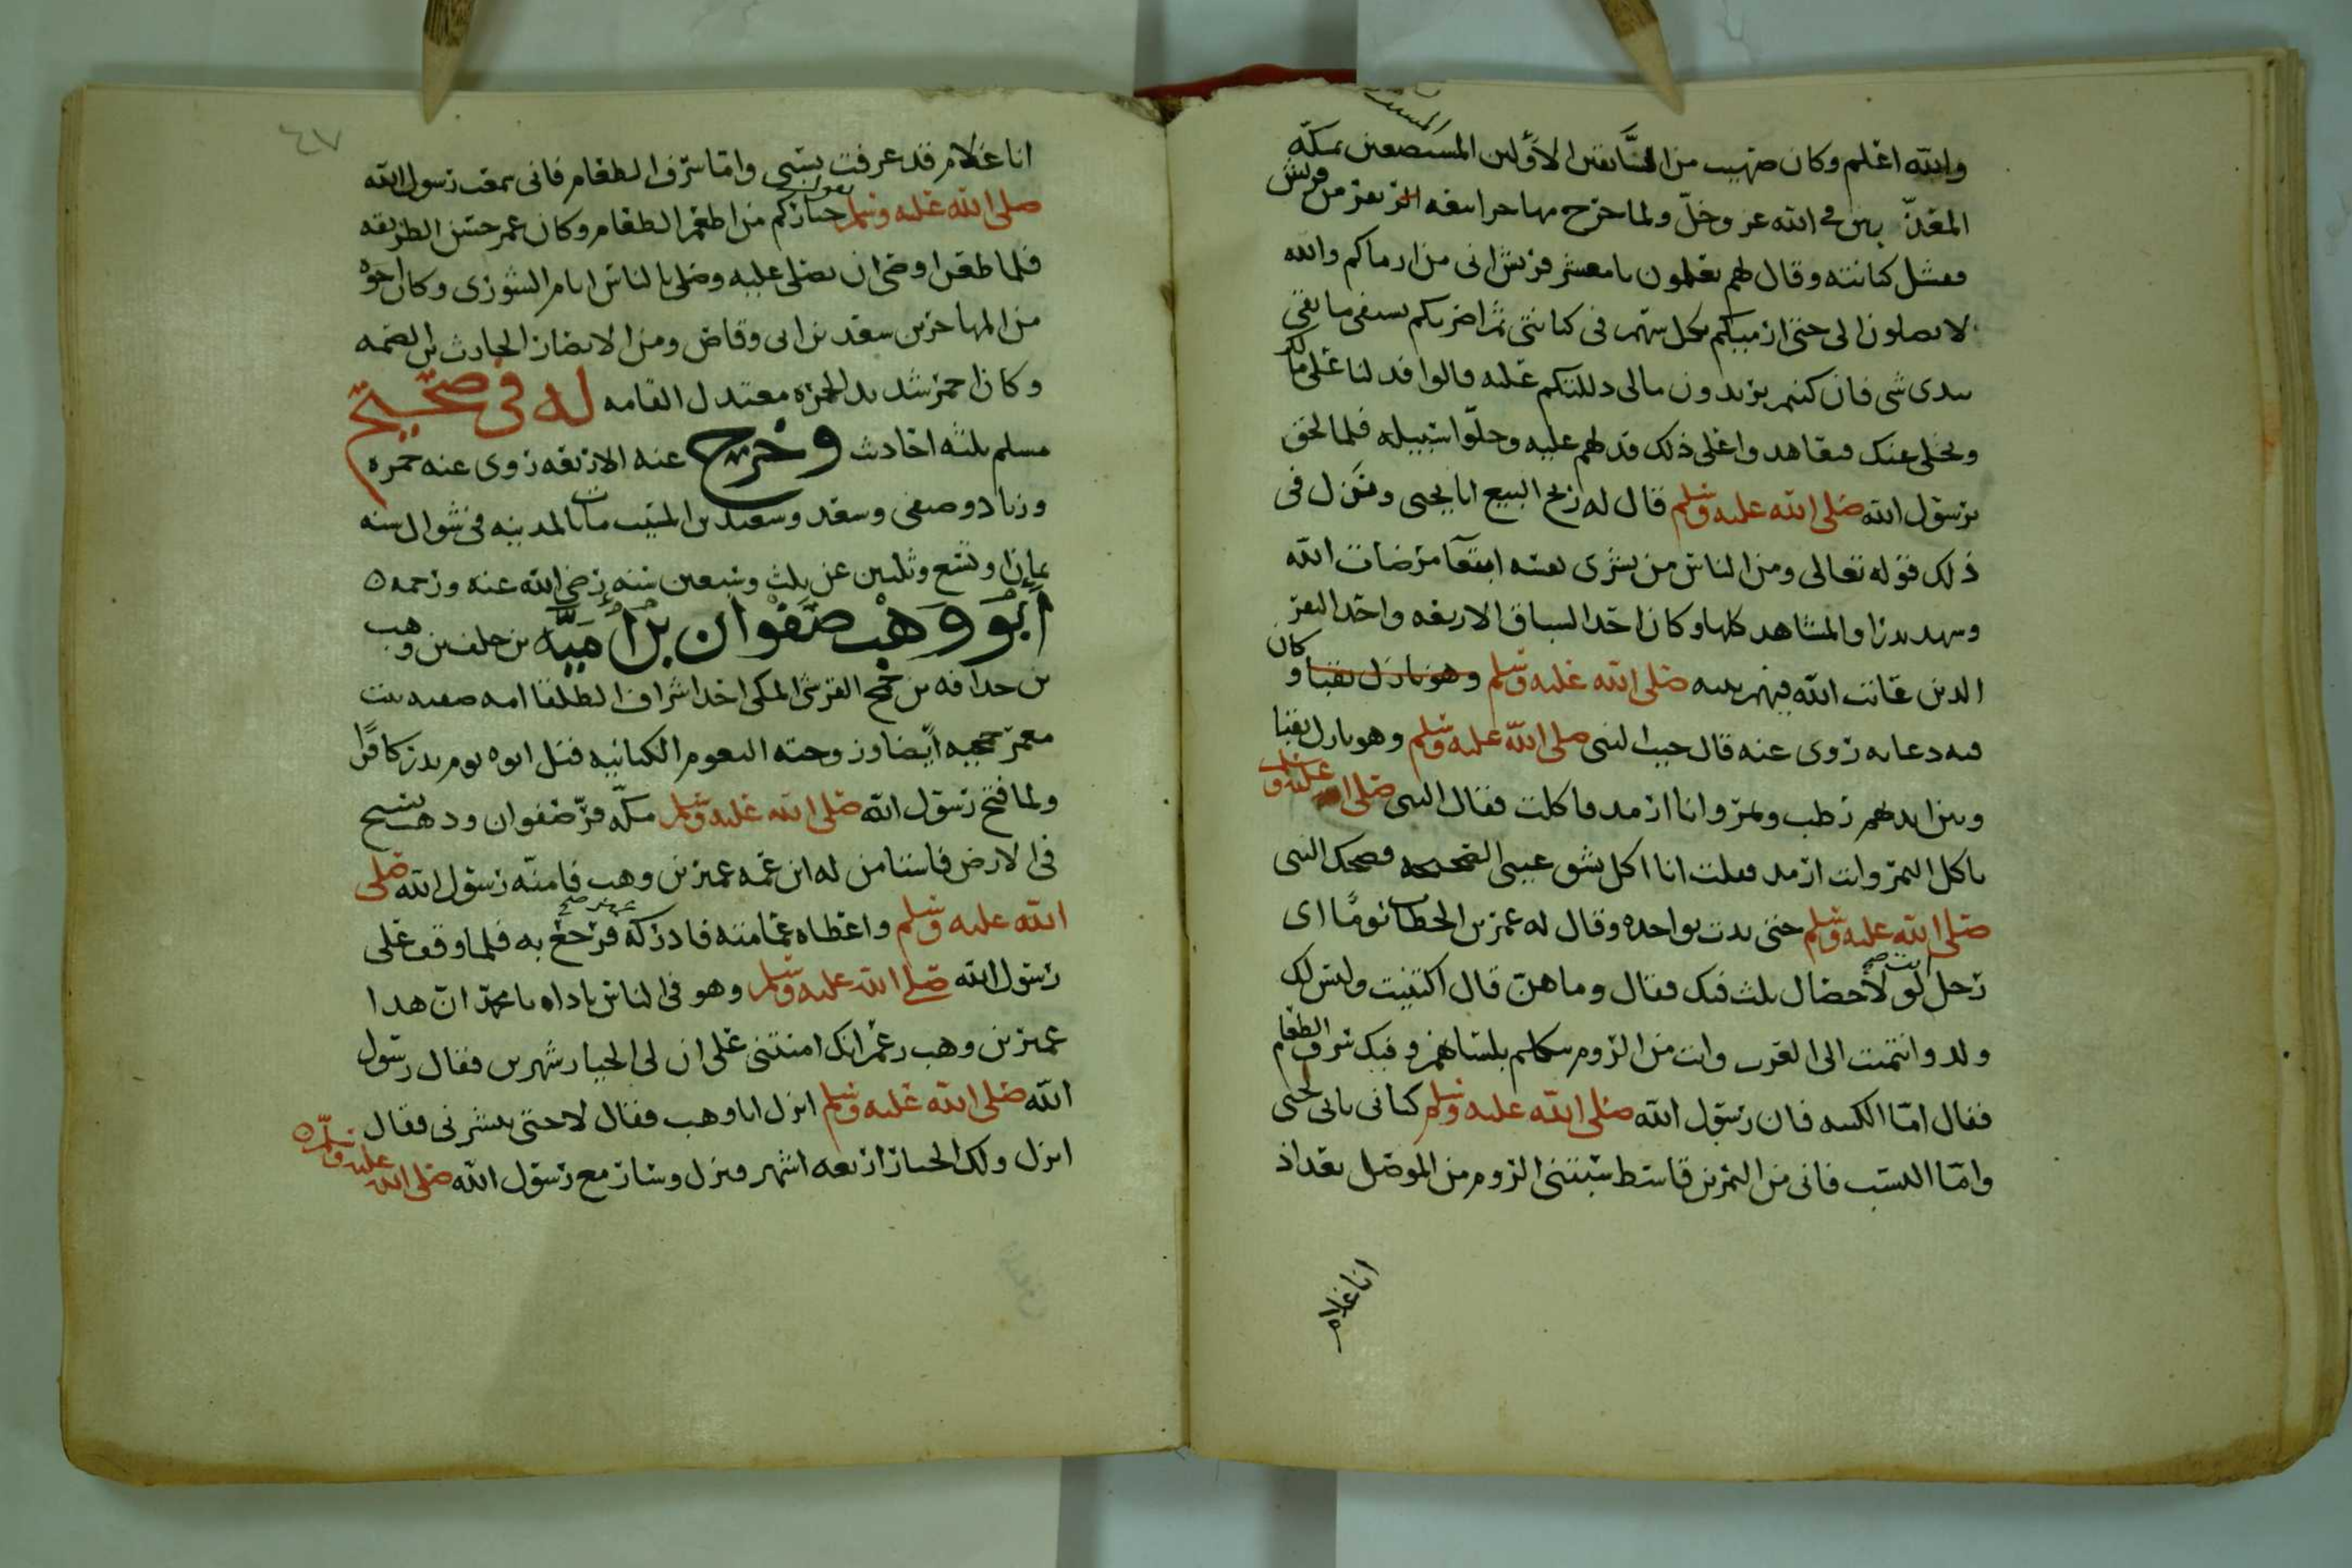 والله اعلم وكان صهيب من السابقين الأولين المستضعفين بمكة
المعذبين في الله عز وجل ولما خرج مهاجرا تبعه نفر من قريش
فنثل كنانته وقال لهم تعلمون يا معشر قريش انى من ارماكم والله
لا تصلون الى حتى ارميكم بكل سهم فى كنانتى ثم اضربكم بسيفى ما بقى
بيدى شى فان كنتم تريدون مالى دللتكم عليه قالوا فدلنا على مالك
ونخلى عنك فتعاهدوا على ذلك فدلهم عليه وخلوا سبيله فلما لحق
برسول الله صلى الله عليه وسلم قال له ربح البيع ابا يحيى ونزل فى
ذلك قوله تعالى ومن الناس من يشرى نفسه ابتغا مرضات الله
وشهد بدرا والمشاهد كلها وكان احد السباق الاربعه واحد النفر
الذين عاتب الله فيهم نبيه صلى الله عليه وسلم وهو نازل بقبا وكان
فيه دعابه روى عنه قال جيت النبى صلى الله عليه وسلم وهو نازل بقبا
وبين ايديهم رطب وتمر وانا ارمد فاكلت فقال النبى صلى الله عليه وسلم
تاكل التمر وانت ارمد فقلت انا اكل بشق عينى الصحيحه فضحك النبى
صلى الله عليه وسلم حتى بدت نواجده وقال له عمر بن الخطاب يومًا اى
رجل انت لولا خصال ثلث فيك فقال وما هن قال اكتنيت وليس لك
ولد وانتميت الى العرب وانت من الروم تتكلم بلسانهم وفيك سرف الطعام
فقال اما الكنيه فان رسول الله صلى الله عليه وسلم كنانى بابى يحيى
واما النسب فانى من النمر بن قاسط سبتنى الروم من الموصل بعد اذ
انا غلام
٤٧
انا غلام قد عرفت نسبى واما سرف الطعام فانى سمعت رسول الله
صلى الله عليه وسلم يقول خياركم من اطعم الطعام وكان عمر حسن الطريقه
فلما طعن اوصى ان يصلى عليه وصلى بالناس ايام الشورى وكان اخوه
من المهاجرين سعد بن ابى وقاص ومن الانصار الحارث بن الصمه
وكان احمر شديد الحمره معتدل القامه له فى صحيح
مسلم ثلثه احاديث وخرج عنه الاربعه روى عنه حمزه
وزياد وصيفى وسعد وسعيد بن المسيب مات بالمدينه فى شوال سنه
ثمان او تسع وثلثين عن ثلث وسبعين سنه رضى الله عنه ورحمه ه
أبو وهب صفوان بن أميّه بن خلف بن وهب
بن حدافه بن جمح القرشى المكى احد اشراف الطلقا امه صفيه بنت
معمر جمحيه أيضا وزوجته البغوم الكنانيه قتل ابوه يوم بدر كافرًا
ولما فتح رسول الله صلى الله عليه وسلم مكة فرّ صفوان ودهب يسيح
فى الارض فاستامن له ابن عمه عمير بن وهب فامنه رسول الله صلى
الله عليه وسلم واعطاه عمامته فادركه فرجع به فلما وقف على
رسول الله صلى الله عليه وسلم وهو فى الناس ناداه يا محمد ان هدا
عمير بن وهب زعم انك امنتنى على ان لى الخيار شهرين فقال رسول
الله صلى الله عليه وسلم انزل ابا وهب فقال لا حتى تبشرنى فقال
انزل ولك الخيار اربعه اشهر فنزل وسار مع رسول الله صلى الله عليه وسلم ه